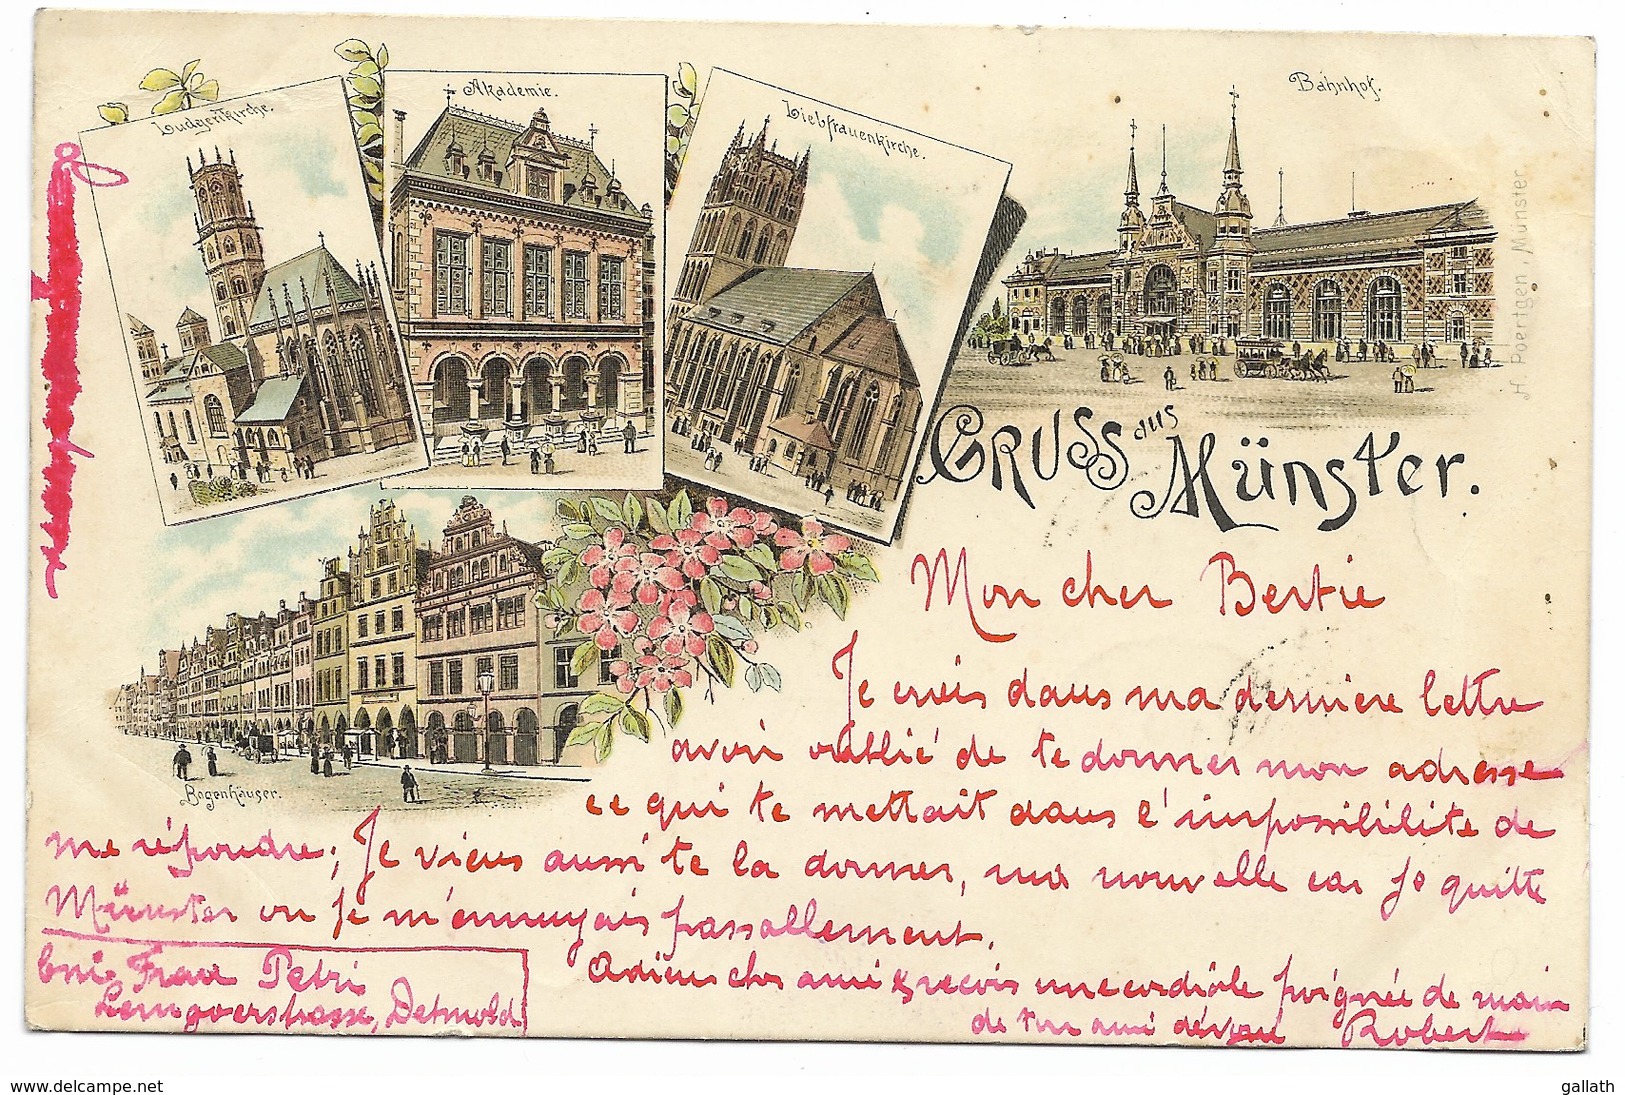 Ludgerikirche.
Akademie.
Liebfrauenkirche.
Bahnhof.
H Poertgen, Münster
GRUSS aus Münster.
Bogenhäuser.
Mon cher Bertie
Je crois dans ma derniere lettre
avoir oublié de te donner mon adresse
ce qui te mettait dans l'impossibilite de
me répondre; Je viens aussi te la donner, ma nouvelle car je quitte
Münster ou je m'ennuyais passablement.
Adieu cher ami & reçois une cordiale poignée de main
de ton ami dévoué Robert
bei Frau Petri
Lemgoerstrasse, Detmold
www.delcampe.net
gallath